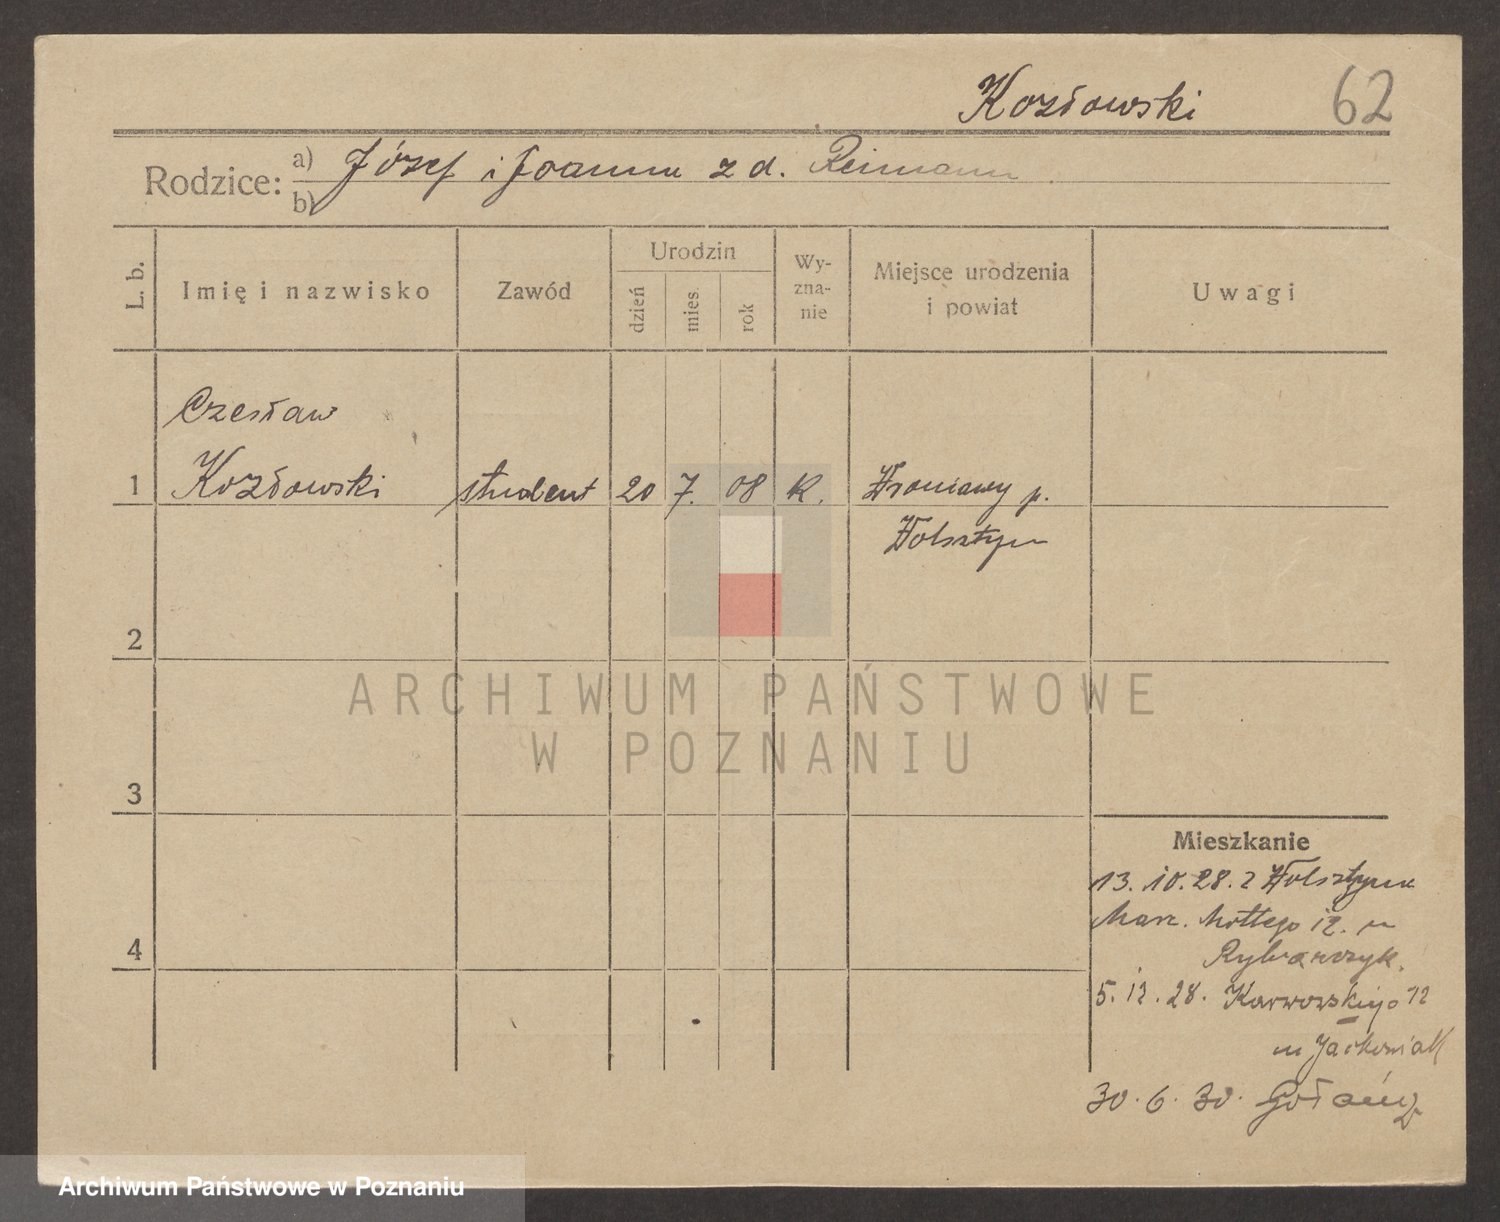 Kozłowski 62
Rodzice: a) Józef i Joanna z d. Reimann
b)
L. b. Imię i nazwisko Zawód Urodzin dzień mies. rok Wyznanie Miejsce urodzenia i powiat Uwagi
Czesław
1 Kozłowski student 20 7. 08 K. Wroniawy p.
Wolsztyn
2
ARCHIWUM PAŃSTWOWE
W POZNANIU
3
Mieszkanie
13. 10. 28. z Wolsztyna
Marc. Mottego 12. u
4
Rybarczyk.
5. 12. 28. Karwowskiego 12
u
30. 6. 30. Gołańcz
Archiwum Państwowe w Poznaniu